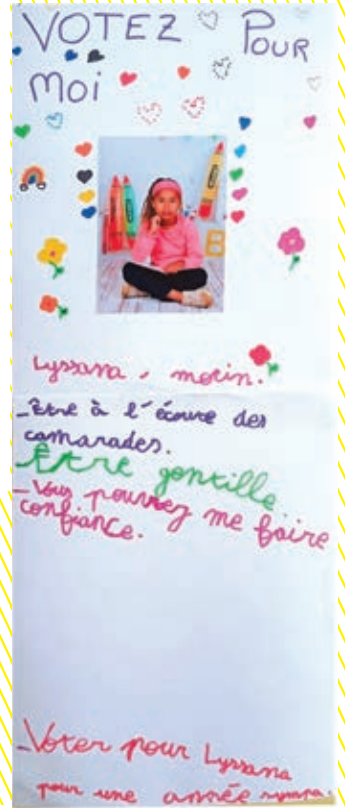 VOTEZ POUR
Moi
B
Lyssana, morin.
-Être à l'écoure des
camarades.
Être gentille
-Vous pouvez me faire
confiance.
-Voter pour Lyssana
pour une année